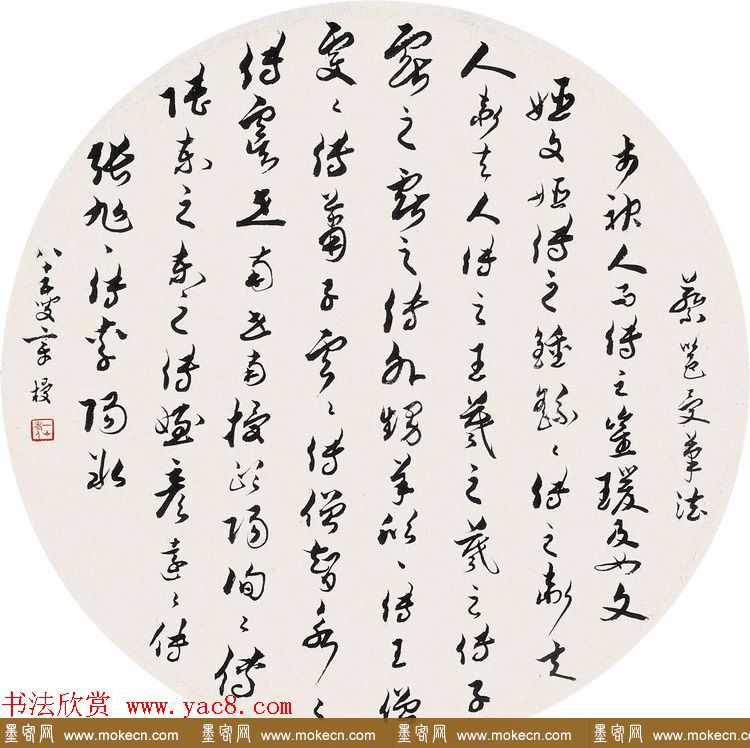 蔡邕受筆法
於神人而傳之崔瑗及女文
姬文姬傳之鍾繇〻傳之衛夫
人衛夫人傳之王羲之羲之傳子
獻之獻之傳外甥羊欣〻傳王僧
虔〻傳蕭子雲〻傳僧智永〻
傳虞世南世南授歐陽詢〻傳
陸柬之柬之傳姪彥遠〻傳
張旭〻傳李陽冰
八十五叟
书法欣赏 www.yac8.com
墨客网 www.mokecn.com 墨客网 www.mokecn.com 墨客网 www.mokecn.com